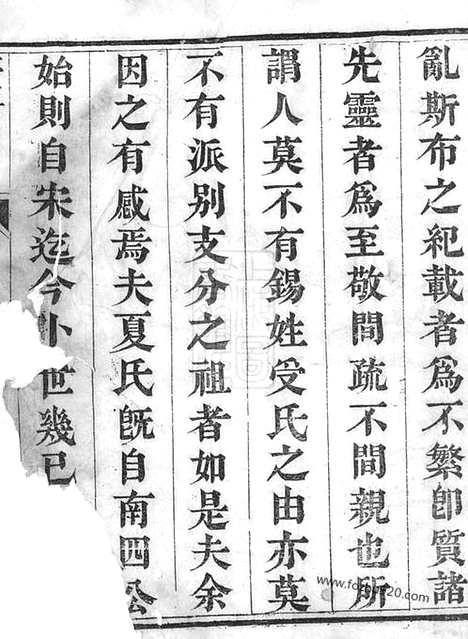 亂斯布之紀載者為不繁卽質諸
先靈者為至敬間疏不間親也所
謂人莫不有錫姓受氏之由亦莫
不有派别支分之祖者如是夫余
因之有感焉夫夏氏旣自南四公
始則自宋迄今卜世幾已